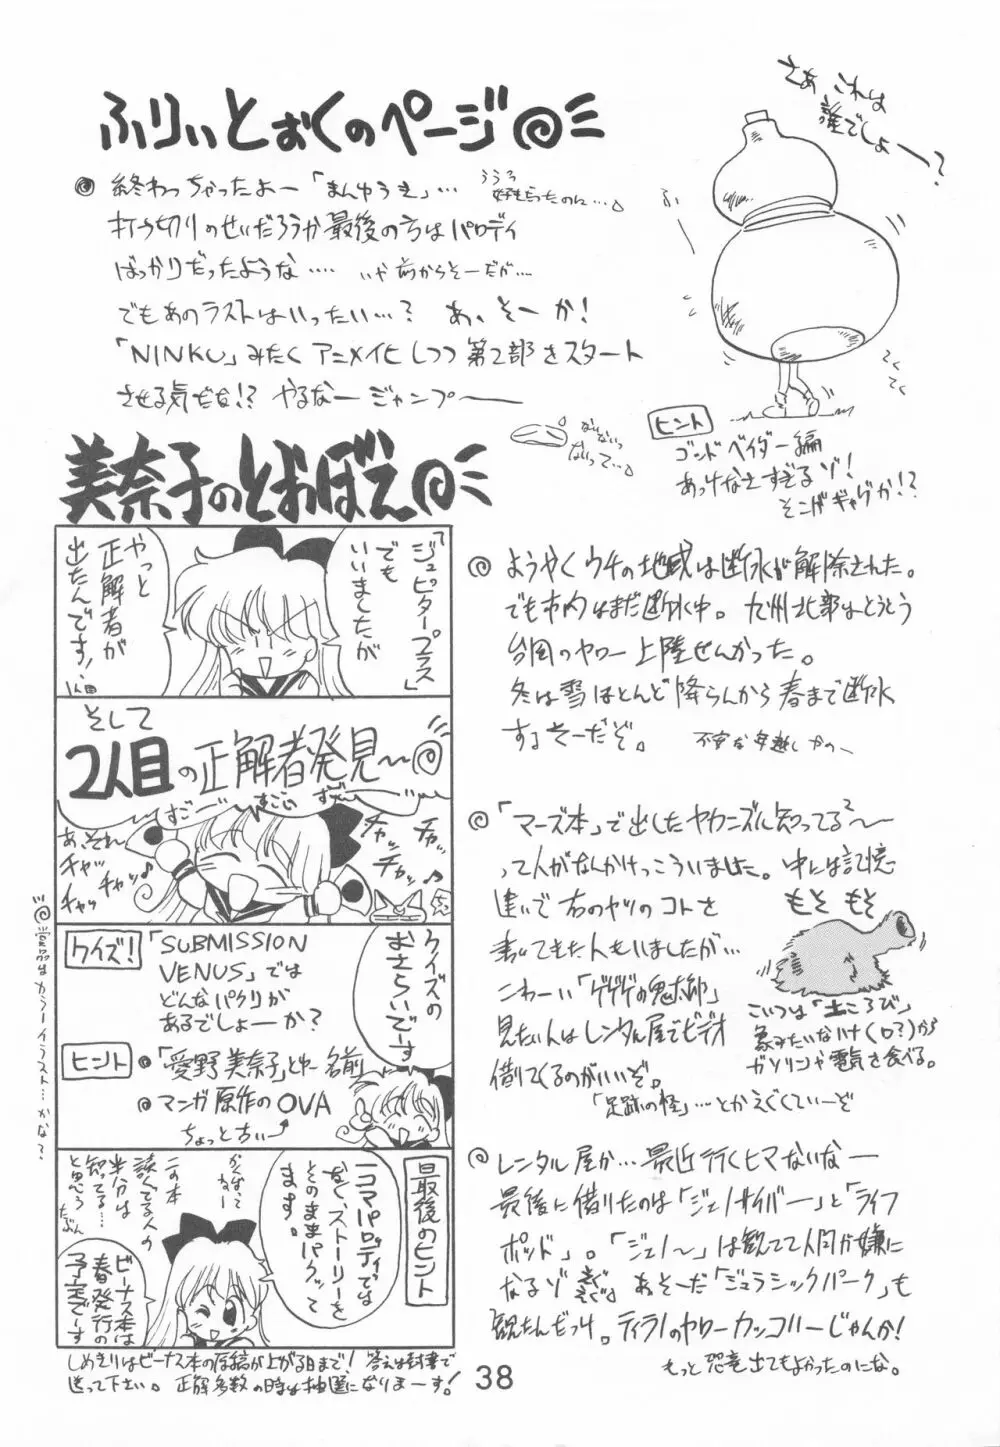 ふりぃとぉくのページ
さあ これは
誰でしょー?
終わっちゃったよー「まんゆうき」…
打ち切りのせいだろうか最後の方はパロディ
ばっかりだったような…. いや前からそーだが….
でもあのラストはいったい…? あ、そーか!
「NINKU」みたく アニメイ化しつつ第2部をスタート
させる気だな!? やるなージャンプ――
ふー
てくてく
ヒント
ゴンドベイダー編
あっけなさすぎるゾ!
そこがギャグか!?
ないないっ
ないって…
美奈子のとおぼえ
「ジュピタープラス」
でも
いいましたが
やっと
正解者が
出たんです!
そして
2人目の正解者発見〜
すごーい すごい
あ、それ
チャッ
チャッ♪
チャッ
チャッ
クイズの
おさらいでーす
クイズ!
「SUBMISSION
VENUS」では
どんなパクリが
あるでしょーか?
ヒント
「愛野美奈子」とゆー名前
マンガ原作のOVA
ちょっと古い
最後のヒント
1コマパロディでは
なく、ストーリーを
そのままパクッて
ます。
この本
読んでる人の
半分は
知ってる…
と思う
たぶん
ビーナス本は
春発行の
予定でーす
しめきりはビーナス本の原稿が上がる日まで! 答えは封書で
送って下さい。 正解多数の時は抽選になりまーす!
賞品はカラーイラスト…かな?
ようやくウチの地域は断水が解除された。
でも市内はまだ断水中。九州北部はとうとう
台風のヤロー上陸せんかった。
冬は雪ほとんど降らんから春まで断水
するそーだぞ。
「マーズ本」で出したヤカンズル知ってる〜
って人がなんかけっこういました。中には記憶
違いで右のヤツのコトを
書いてきた人もいましたが…
こわーい「ゲゲゲの鬼太郎」
見たい人はレンタル屋でビデオ
借りてくるのがいいぞ。
「足跡の怪」…とかえぐくていーぞ
もそ もそ
こいつは「土ころび」
象みたいなハナ(口?)から
ガソリンや電気を食べる。
レンタル屋か…最近行くヒマないなー
最後に借りたのは「ジェノサイバー」と「ライフ
ポッド」。「ジェノ〜」は観てて人間が嫌に
なるゾ あ、そーだ「ジュラシックパーク」も
観たんだっけ。ティラノのヤローカッコいーじゃんか!
もっと恐竜出てもよかったのにな。
38